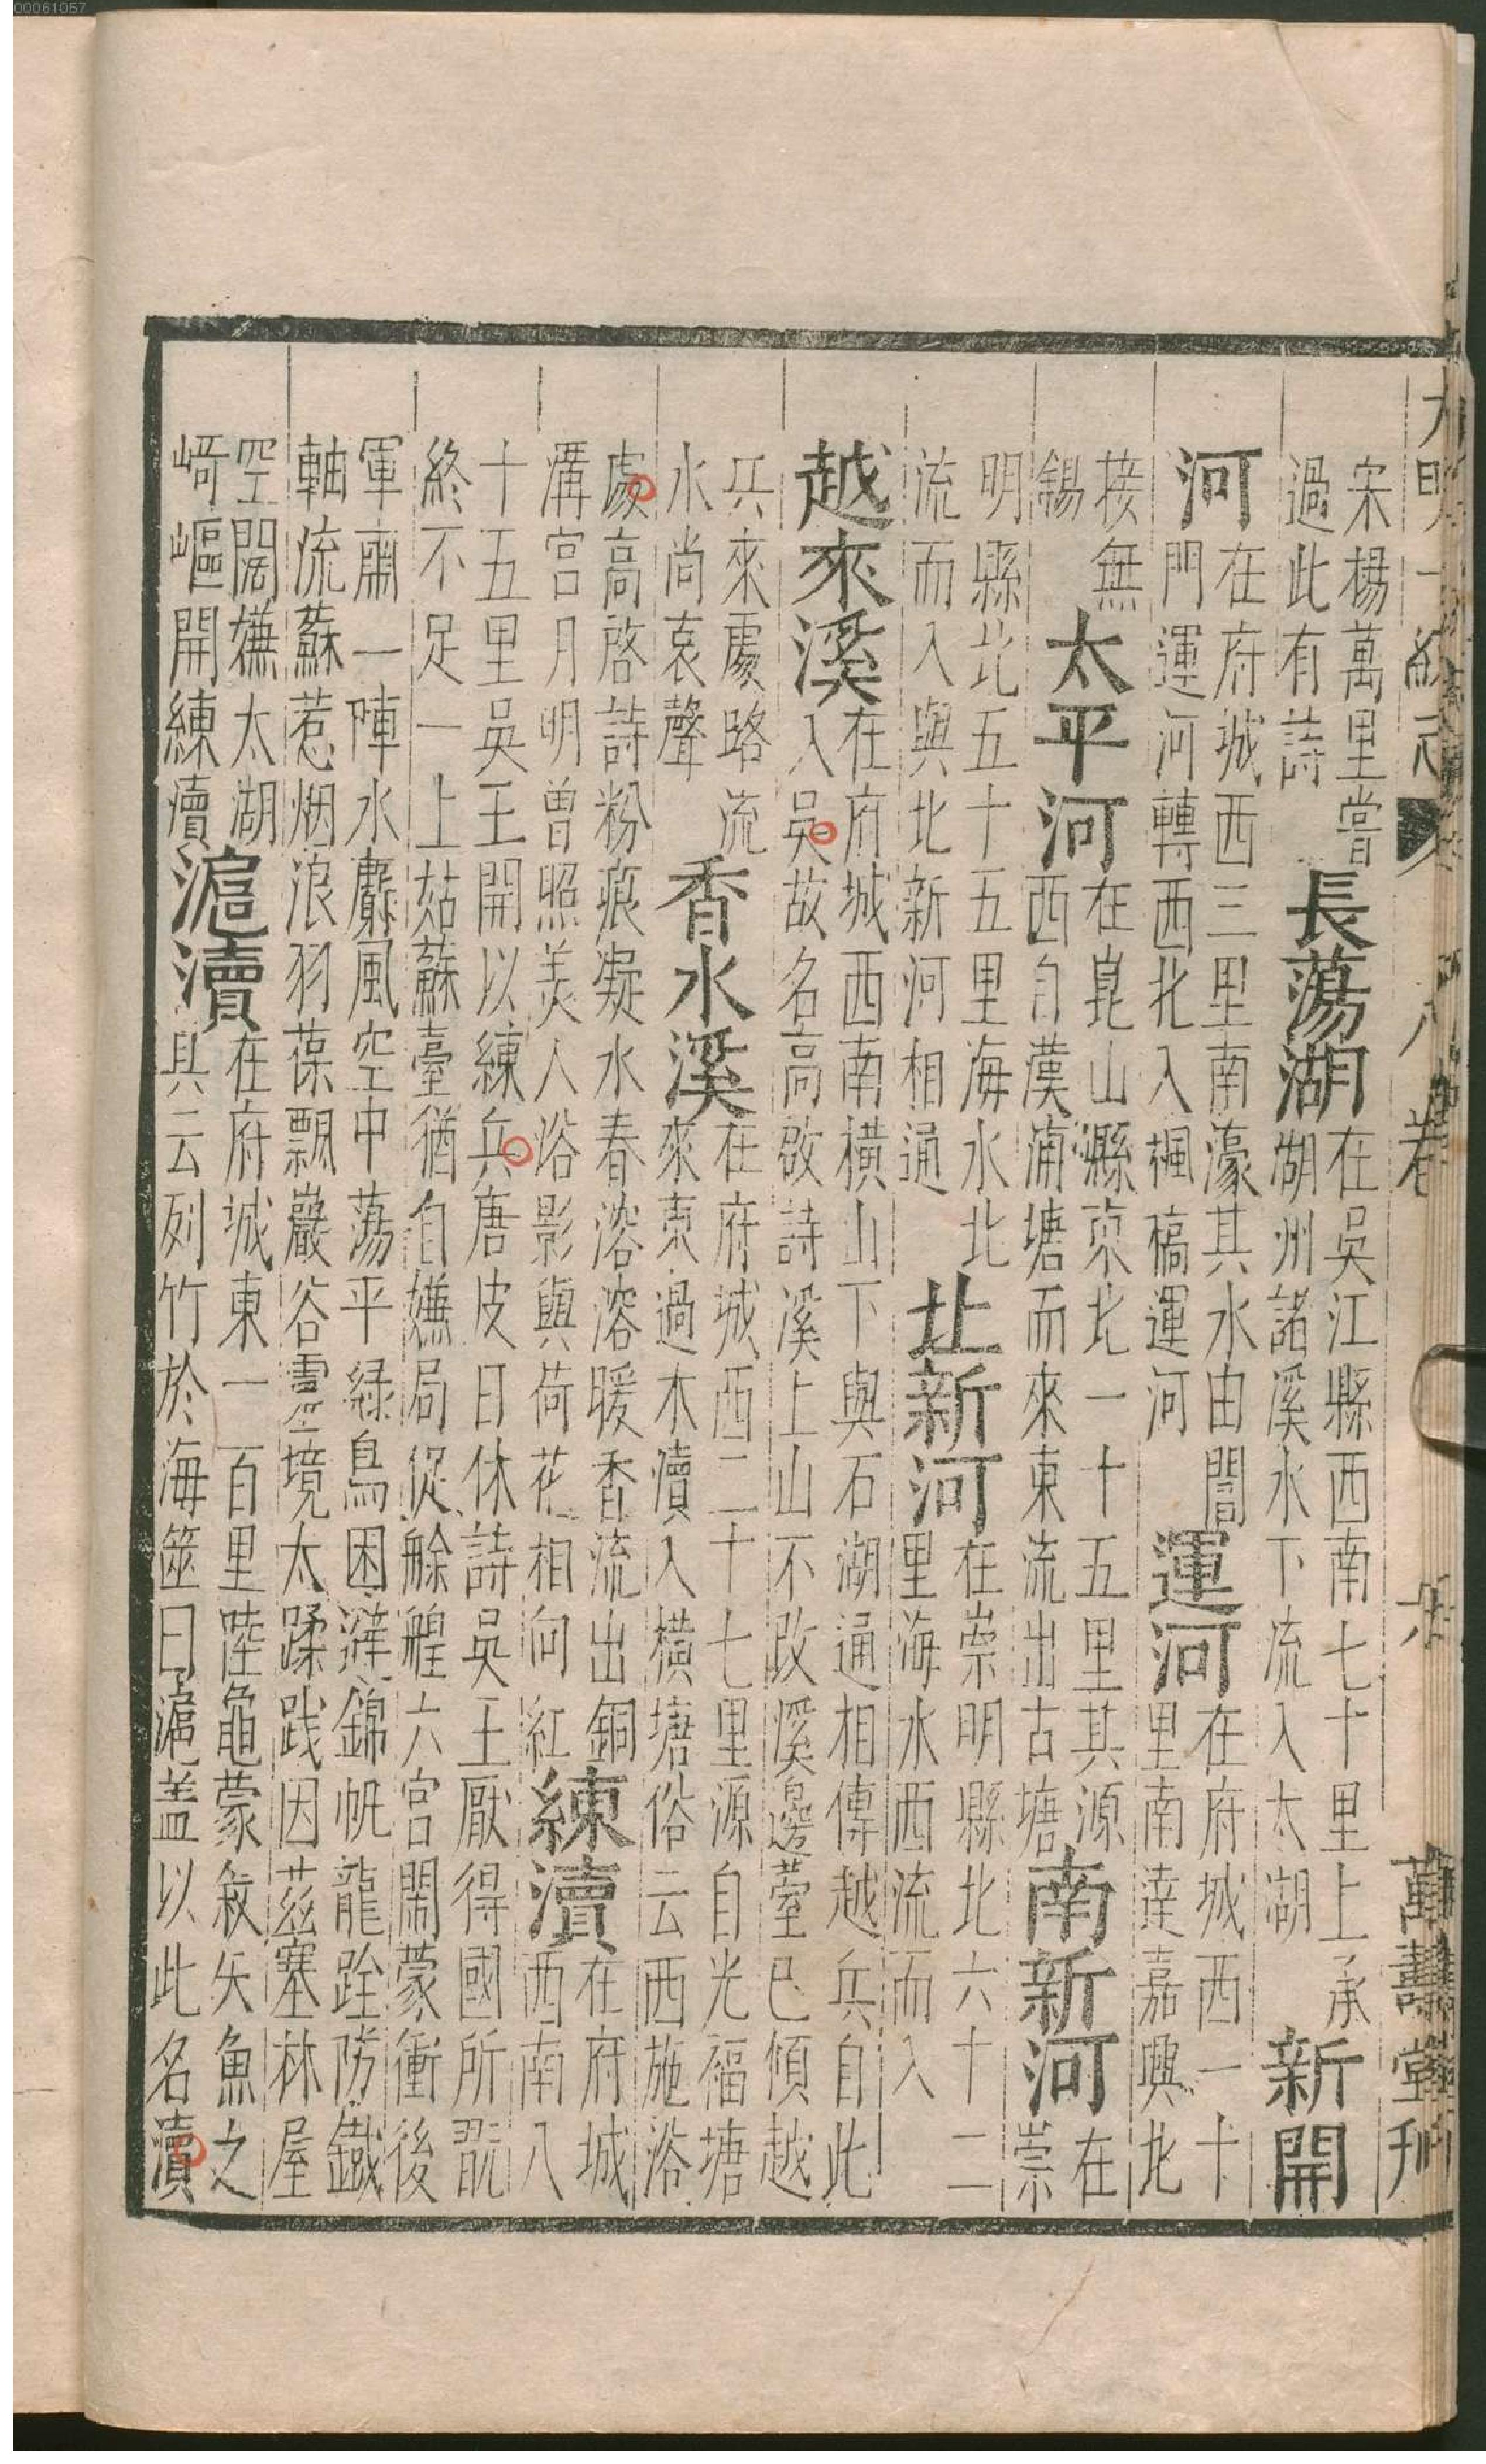 大明一統志 八卷 萬壽堂刋
宋楊萬里嘗過此有詩 長蕩湖 在吳江縣西南七十里上承湖州諸溪水下流入太湖 新開
河 在府城西三里南濠其水由閶門運河轉西北入楓橋運河 運河 在府城西一十里南達嘉興北
接無錫 太平河 在崑山縣東北一十五里其源西自漢浦塘而來東流出古塘 南新河 在崇
明縣北五十五里海水北流而入與北新河相通 北新河 在崇明縣北六十二里海水西流而入
越來溪 在府城西南橫山下與石湖通相傳越兵自此入吳故名高啟詩溪上山不改溪邊臺已傾越
兵來處路流水尚哀聲 香水溪 在府城西二十七里源自光福塘來東過木瀆入橫塘俗云西施浴
處高啓詩粉痕凝水春溶溶暖香流出銅溝宮月明曾照美人浴影與荷花相向紅 練瀆 在府城西南八
十五里吳王開以練兵唐皮日休詩吳王厭得國所翫終不足一上姑蘇臺猶自嫌局促艅艎六宮閙蒙衝後
軍肅一陣水麝風空中蕩平綠鳥困避錦帆龍跧防鐵軸流蘇惹烟浪羽葆飄巖谷靈境太蹂踐因茲塞林屋
空闊嫌太湖崎嶇開練瀆 滬瀆 在府城東一百里陸龜蒙敘矢魚之具云列竹於海澨曰滬蓋以此名瀆
00061057